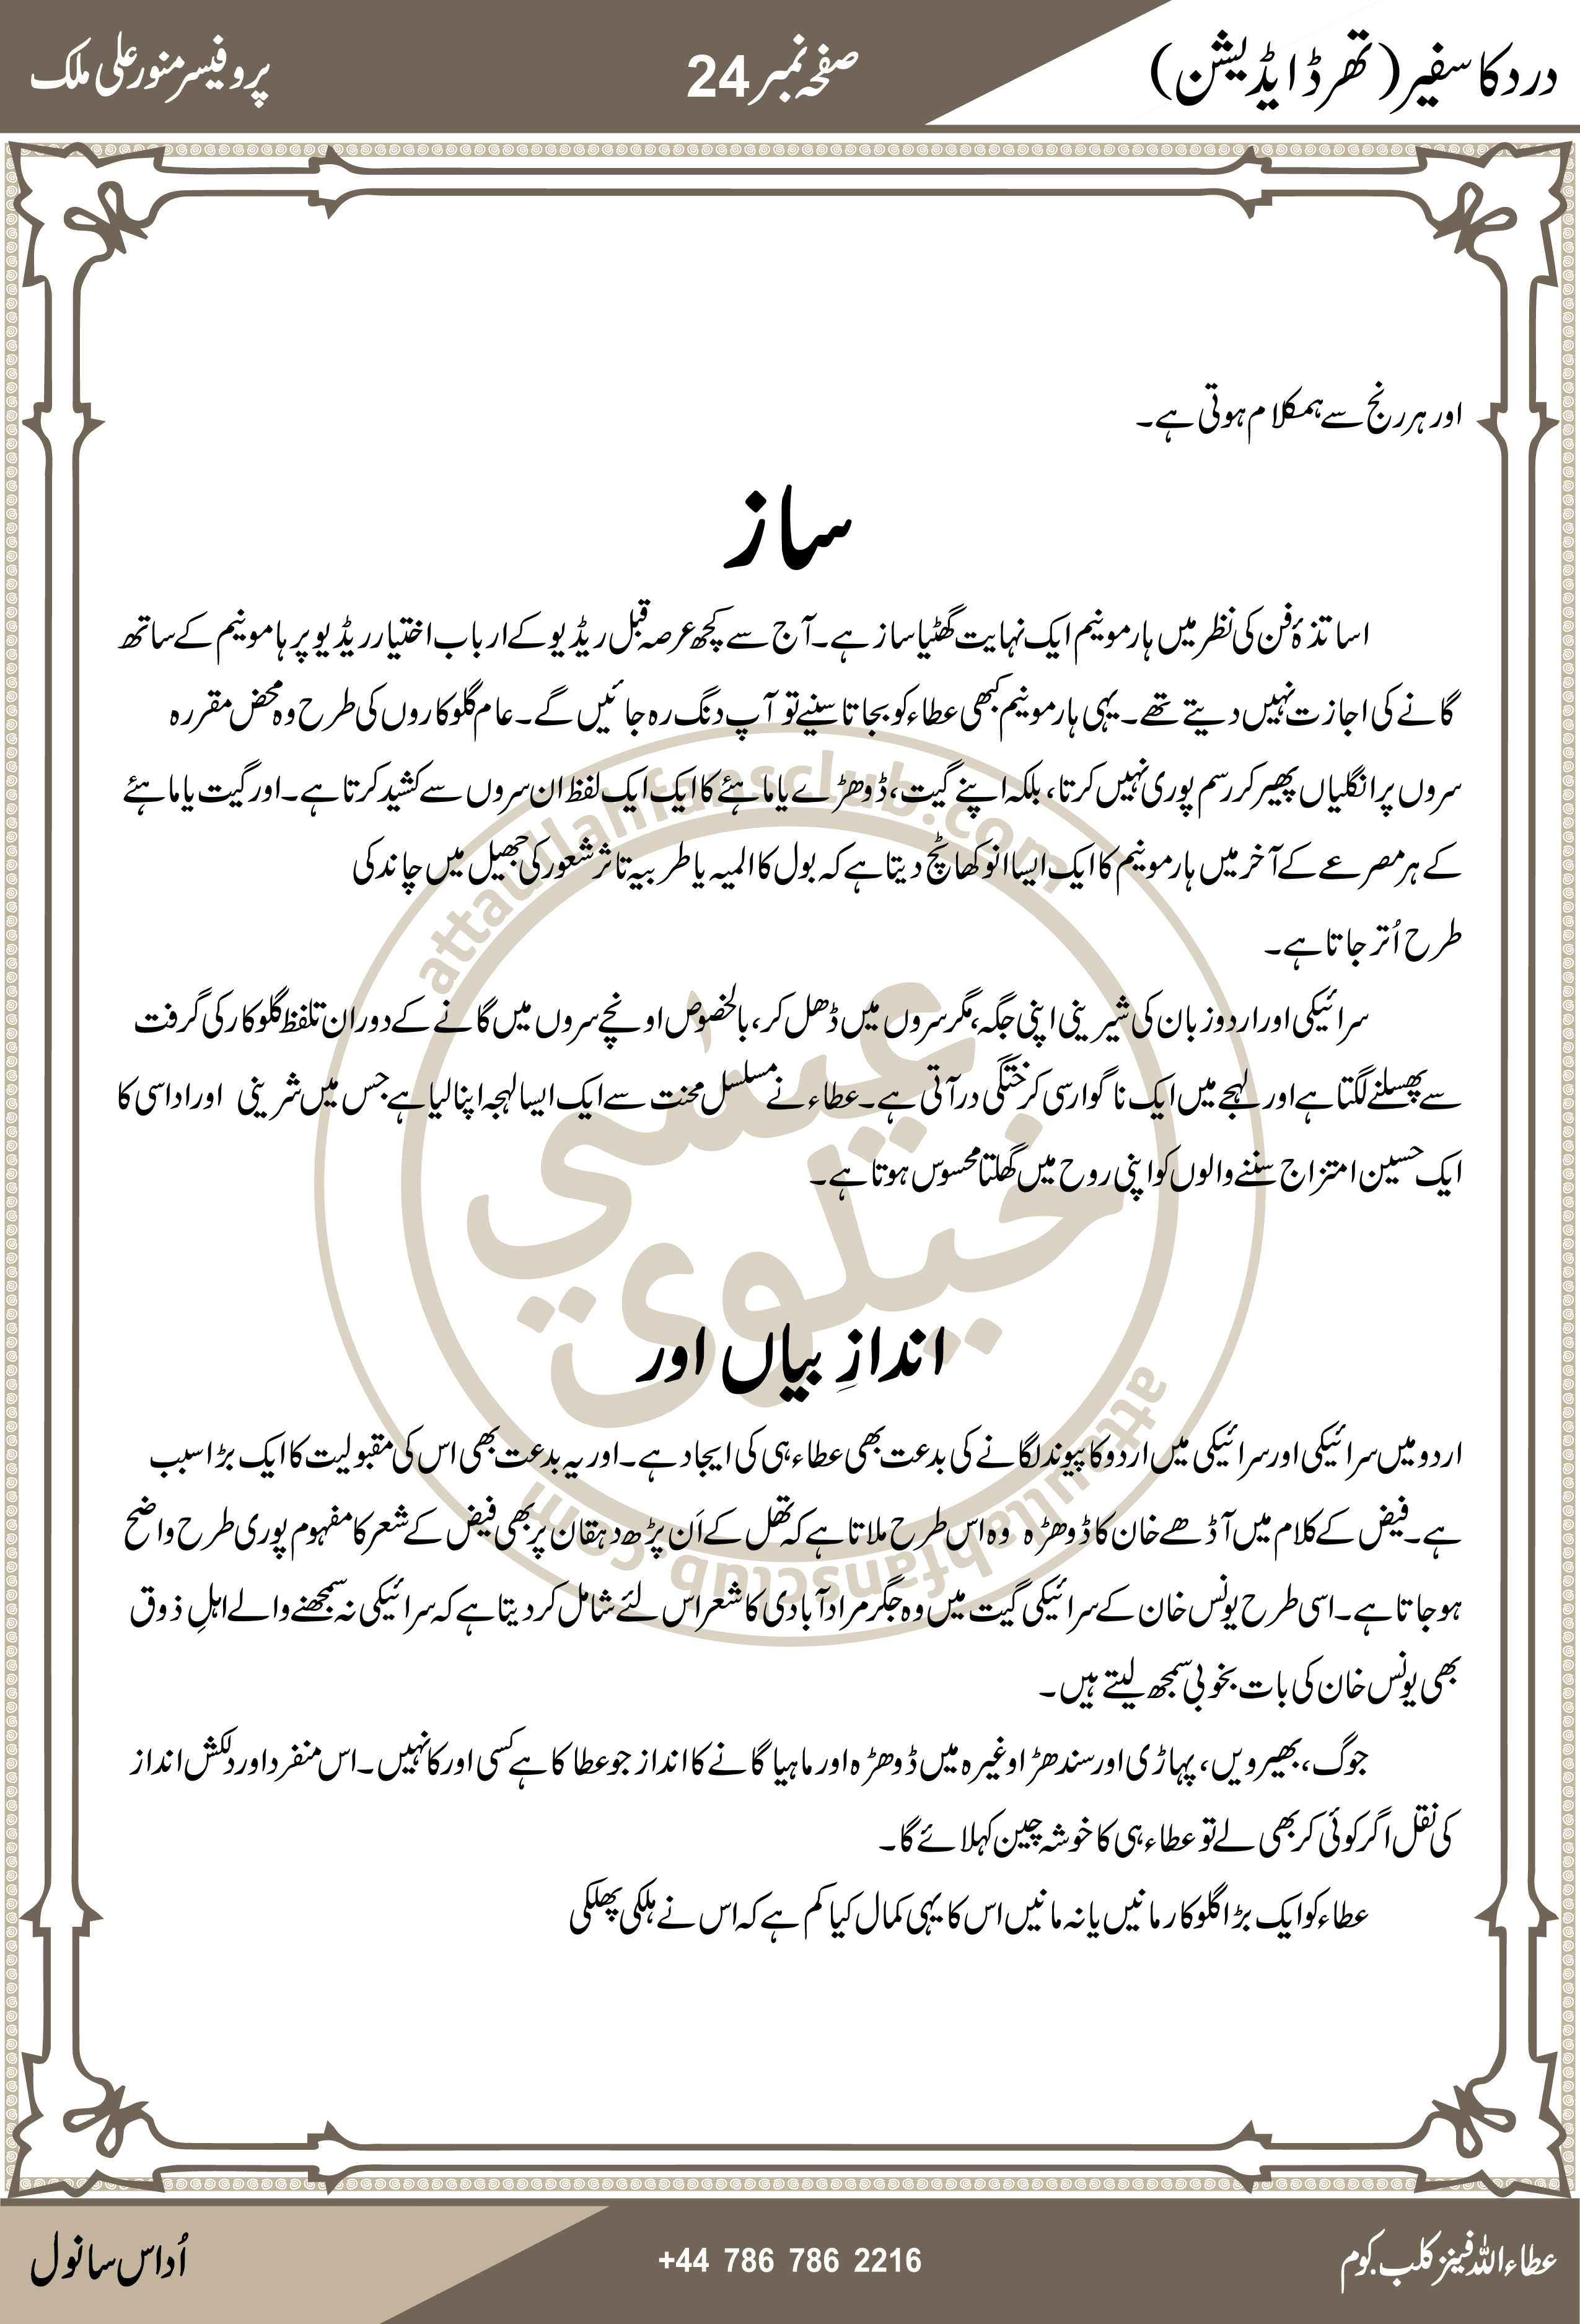 درد کا سفیر (تھرڈ ایڈیشن)
صفحہ نمبر 24
پروفیسر منور علی ملک
اور ہر رنج سے ہمکلام ہوتی ہے۔
ساز
اساتذۂ فن کی نظر میں ہارمونیم ایک نہایت گھٹیا ساز ہے۔ آج سے کچھ عرصہ قبل ریڈیو کے ارباب اختیار ریڈیو پر ہامونیم کے ساتھ
گانے کی اجازت نہیں دیتے تھے۔ یہی ہارمونیم کبھی عطاء کو بجاتا سنیے تو آپ دنگ رہ جائیں گے۔ عام گلوکاروں کی طرح وہ محض مقررہ
سروں پر انگلیاں پھیر کر رسم پوری نہیں کرتا، بلکہ اپنے گیت، ڈوھڑے یا ماہئے کا ایک ایک لفظ ان سروں سے کشید کرتا ہے۔ اور گیت یا ماہئے
کے ہر مصرعے کے آخر میں ہارمونیم کا ایک ایسا انوکھا ٹچ دیتا ہے کہ بول کا المیہ یا طربیہ تاثر شعور کی جھیل میں چاند کی
طرح اُتر جاتا ہے۔
سرائیکی اور اردو زبان کی شیرینی اپنی جگہ، مگر سروں میں ڈھل کر، بالخصوص اونچے سروں میں گانے کے دوران تلفظ گلوکار کی گرفت
سے پھسلنے لگتا ہے اور لہجے میں ایک ناگوار سی کرختگی در آتی ہے۔ عطاء نے مسلسل محنت سے ایک ایسا لہجہ اپنا لیا ہے جس میں شرینی اور اداسی کا
ایک حسین امتزاج سننے والوں کو اپنی روح میں گھلتا محسوس ہوتا ہے۔
اندازِ بیاں اور
اردو میں سرائیکی اور سرائیکی میں اردو کا پیوند لگانے کی بدعت بھی عطاء ہی کی ایجاد ہے۔ اور یہ بدعت بھی اس کی مقبولیت کا ایک بڑا سبب
ہے۔ فیض کے کلام میں آڈھے خان کا ڈوھڑہ وہ اس طرح ملاتا ہے کہ تھل کے اَن پڑھ دہقان پر بھی فیض کے شعر کا مفہوم پوری طرح واضح
ہو جاتا ہے۔ اسی طرح یونس خان کے سرائیکی گیت میں وہ جگر مراد آبادی کا شعر اس لئے شامل کر دیتا ہے کہ سرائیکی نہ سمجھنے والے اہلِ ذوق
بھی یونس خان کی بات بخوبی سمجھ لیتے ہیں۔
جوگ، بھیرویں، پہاڑی اور سندھڑا وغیرہ میں ڈوھڑہ اور ماہیا گانے کا انداز جو عطا کا ہے کسی اور کا نہیں۔ اس منفرد اور دلکش انداز
کی نقل اگر کوئی کر بھی لے تو عطاء ہی کا خوشہ چین کہلائے گا۔
عطاء کو ایک بڑا گلوکار مانیں یا نہ مانیں اس کا یہی کمال کیا کم ہے کہ اس نے ہلکی پھلکی
attaullahfansclub.com
عیسٰی
خیلوی
attaullahfansclub.com
عطاءاللہ فینز کلب.کوم
+44 786 786 2216
اُداس سانول